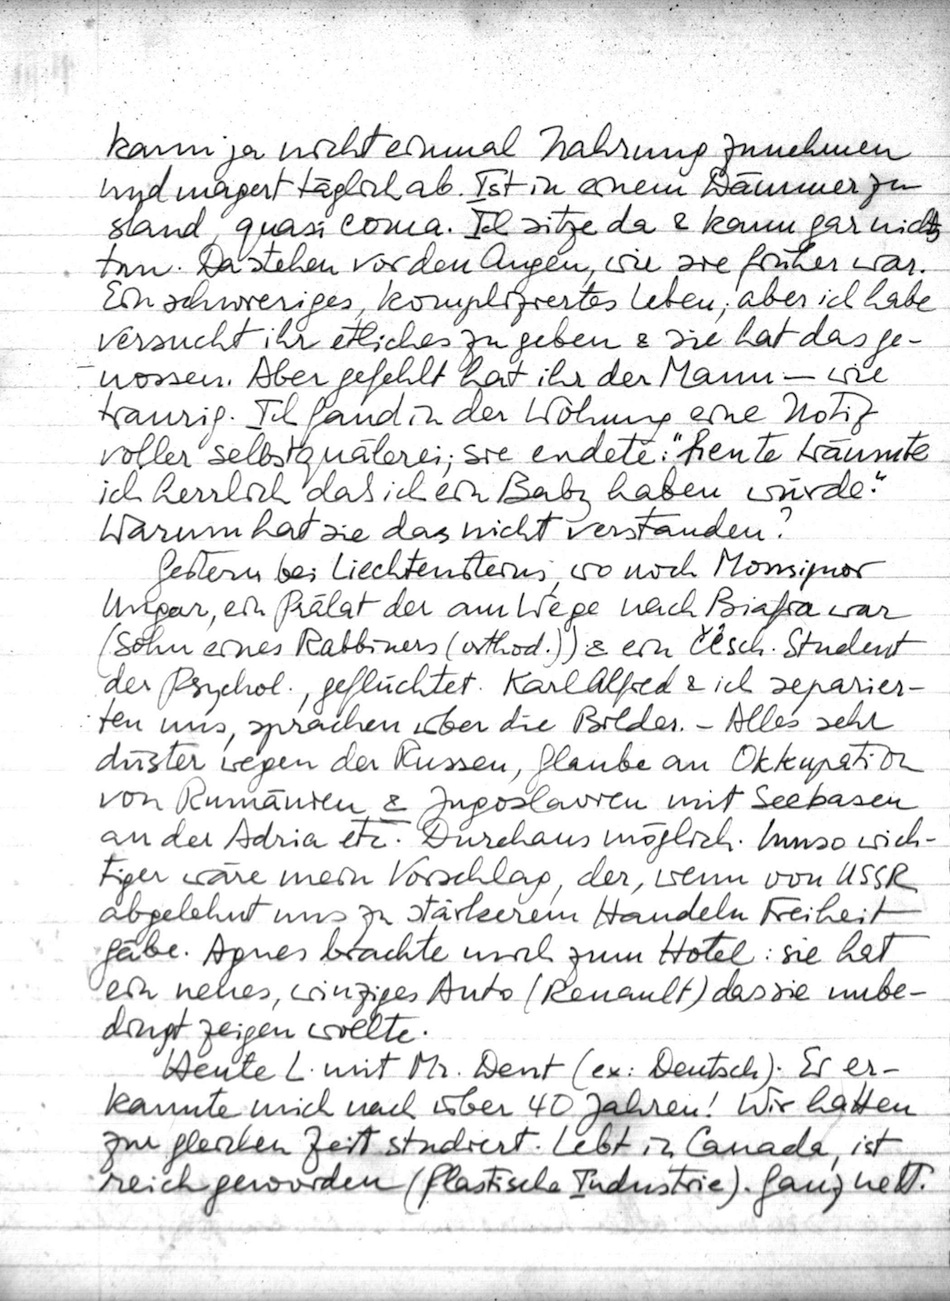 kann ja nicht einmal Nahrung zunehmen
und magert täglich ab. Ist in einem Dämmerzu
stand, quasi coma. Ich sitze da & kann gar nichts
tun. Da stehen vor den Augen, wie sie früher war.
Ein schwieriges, kompliziertes Leben; aber ich habe
versucht ihr etliches zu geben & sie hat das ge-
nossen. Aber gefehlt hat ihr der Mann – wie
traurig. Ich fand in der Wohnung eine Notiz
voller Selbstquälerei; sie endete: "heute träumte
ich herrlich daß ich ein Baby haben würde."
Warum hat sie das nicht verstanden?
Gestern bei Liechtensteins, wo noch Monsignor
Ungar, ein Prälat der am Wege nach Biafra war
(Sohn eines Rabbiners (orthod.)) & ein čech. Student
der Psychol., geflüchtet. Karl Alfred & ich separier-
ten uns, sprachen über die Bilder. – Alles sehr
düster wegen der Russen, glaube an Okkupation
von Rumänien & Jugoslavien mit Seebasen
an der Adria etc. Durchaus möglich. Umso wich-
tiger wäre mein Vorschlag, der, wenn von USSR
abgelehnt uns zu stärkerem Handeln Freiheit
gäbe. Agnes brachte mich zum Hotel: sie hat
ein neues, winziges Auto (Renault) das sie unbe-
dingt zeigen wollte.
Heute L. mit Mr. Dent (ex: Deutsch). Er er-
kannte mich nach über 40 Jahren! Wir hatten
zur gleichen Zeit studiert. Lebt in Canada, ist
reich geworden (plastische Industrie). Ganz nett.